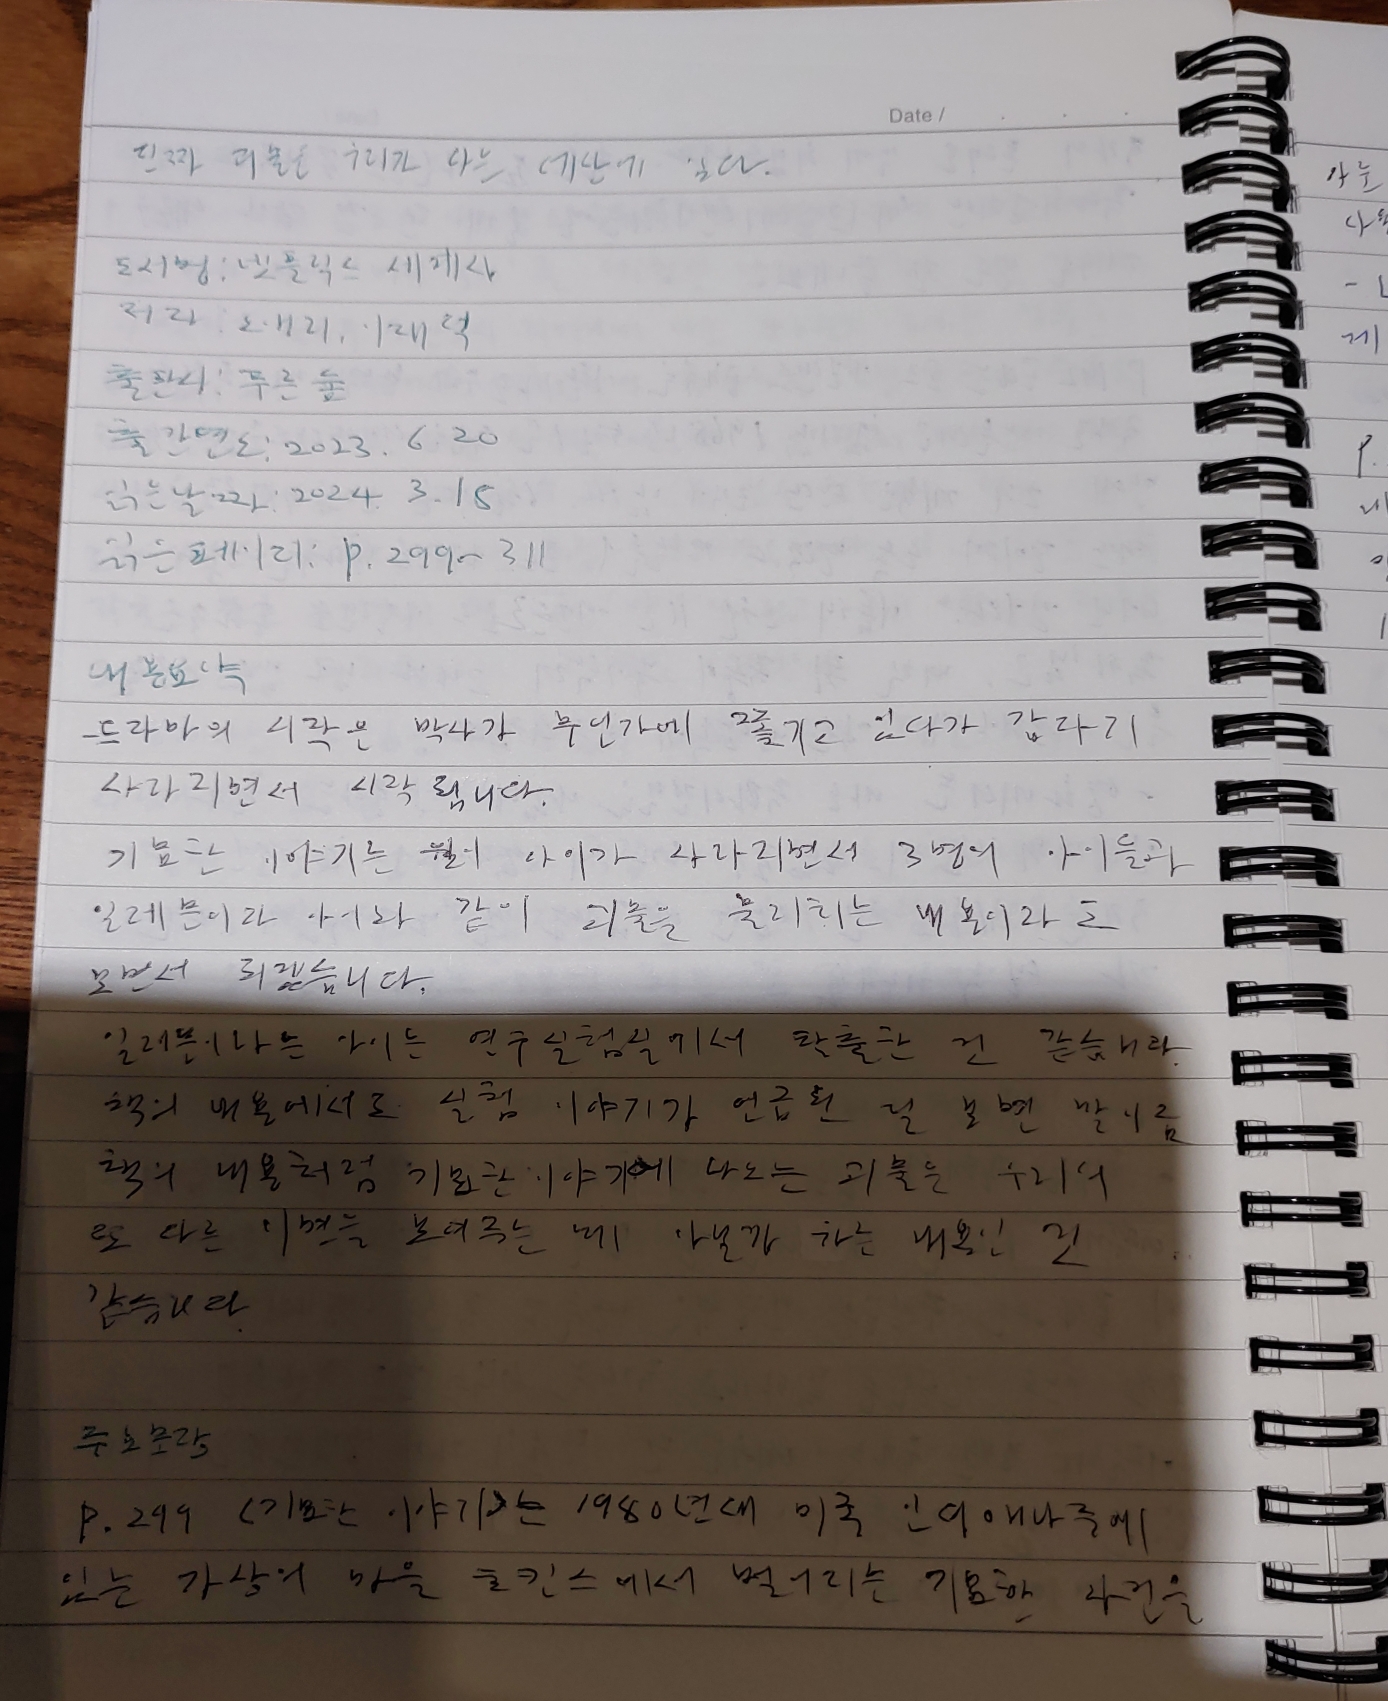 Date /
진짜 괴물은 우리가 사는 세상에 있다.
도서명: 넷플릭스 세계사
저자: 오애리, 이재덕
출판사: 푸른숲
출간연도: 2023. 6 20
읽은날짜: 2024. 3. 15
읽은페이지: p. 299~311
내용요약
드라마의 시작은 박사가 무언가에 쫓기고 있다가 갑자기
사라지면서 시작됩니다.
기묘한 이야기는 윌이 아이가 사라지면서 3명의 아이들과
일레븐이라 아이와 같이 괴물을 물리치는 내용이라고
보면서 되겠습니다.
일레븐이라는 아이는 연구실험실에서 탈출한 건 같습니다.
책의 내용에서도 실험 이야기가 언급된 걸 보면 말이죠
책의 내용처럼 기묘한이야기에 나오는 괴물은 우리의
또 다른 이면을 보여주는 게 아닐까 하는 내용인 것
같습니다.
주요문장
p. 299 <기묘한 이야기>는 1980년대 미국 인디애나주에
있는 가상의 마을 호킨스에서 벌어지는 기묘한 사건을
아는
p.